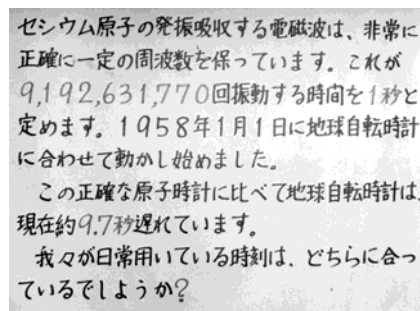 セシウム原子の発振吸収する電磁波は、非常に
正確に一定の周波数を保っています。これが
9,192,631,770回振動する時間を1秒と
定めます。1958年1月1日に地球自転時計
に合わせて動かし始めました。
この正確な原子時計に比べて地球自転時計は、
現在約9.7秒遅れています。
我々が日常用いている時刻は、どちらに合っ
ているでしようか?